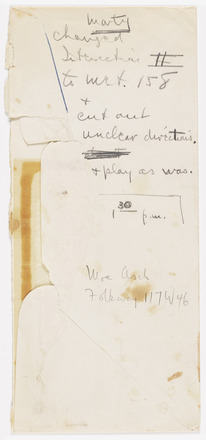 Marty
changed
Intersection II
to Mvt. 158
+
cut out
unclear directions.
+ play as was.
1 30 p.m.
Moe Asch
Folkways 117 W 46